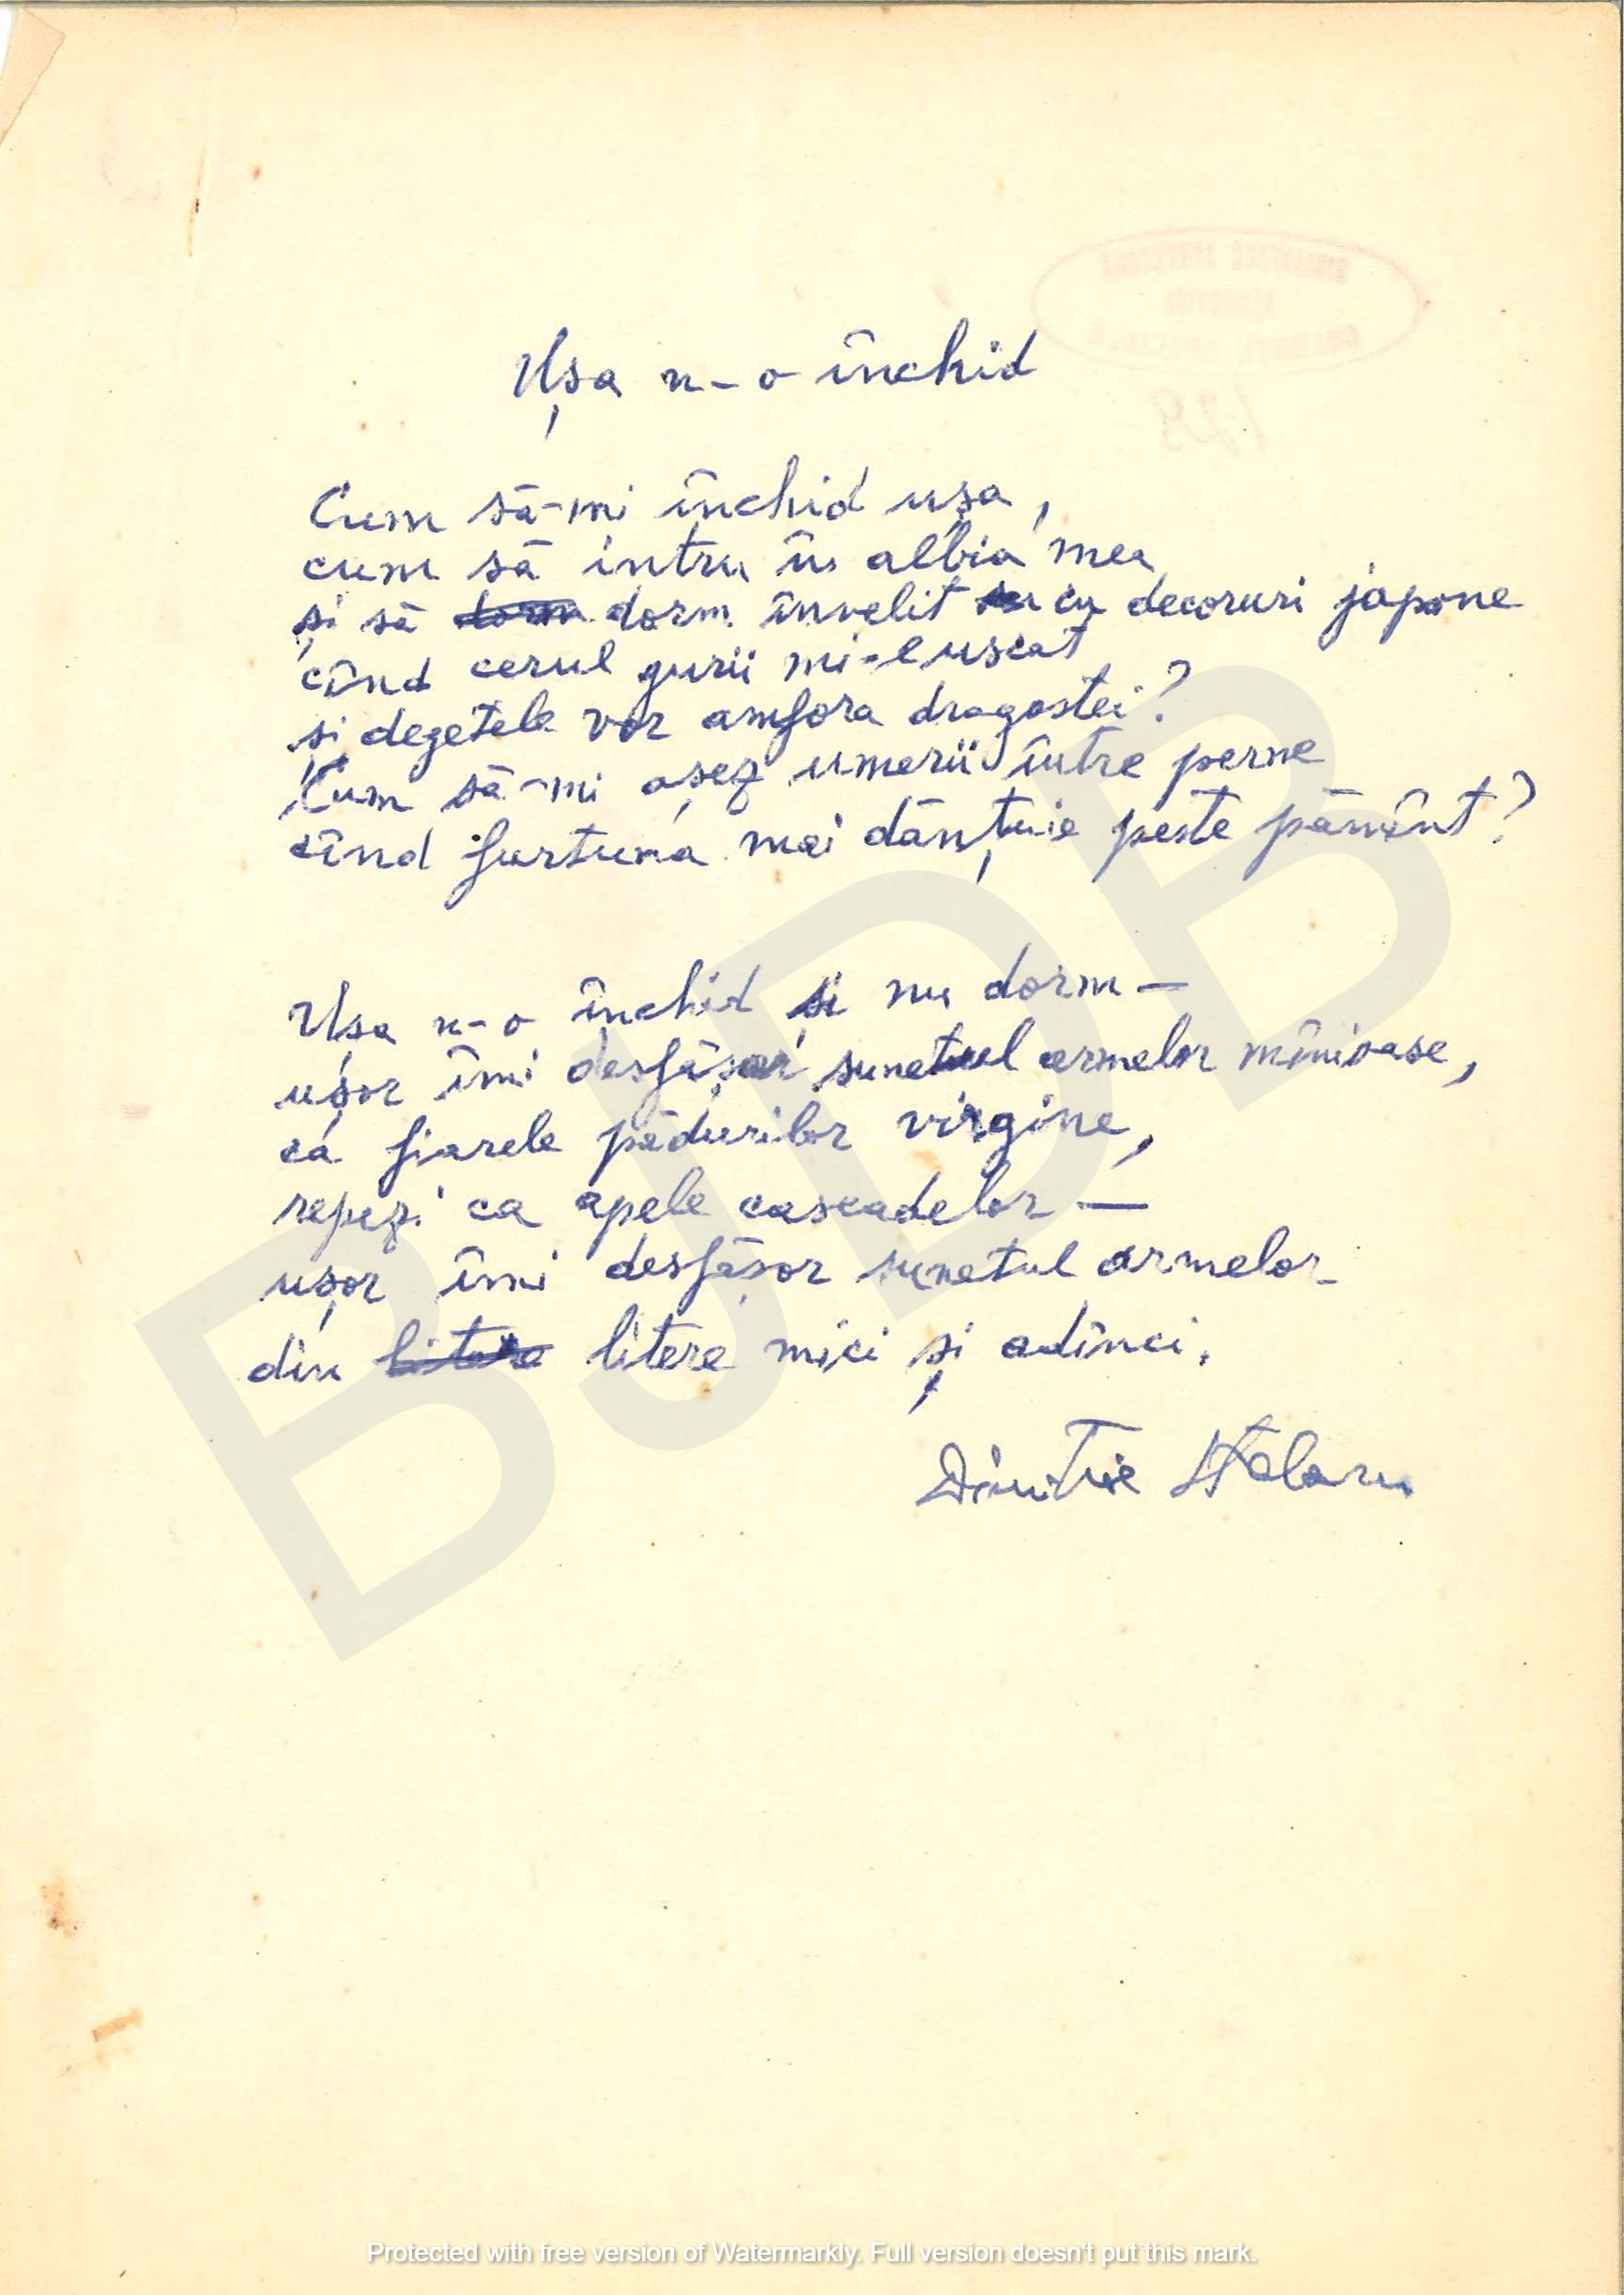 Ușa n-o închid
Cum să-mi închid ușa,
cum să intru în albia mea
și să dorm dorm învelit cu decoruri japone
cînd cerul gurii mi-e uscat
și degetele vor amfora dragostei?
Cum să-mi așez umerii între perne
cînd furtuna mai dănțuie peste pămînt?
Ușa n-o închid și nu dorm —
ușor îmi desfășor sunetul armelor mînioase,
ca fiarele pădurilor virgine,
repezi ca apele cascadelor —
ușor îmi desfășor sunetul armelor
din litere litere mici și adînci.
Dimitrie Stelaru
BJDB
Protected with free version of Watermarkly. Full version doesn't put this mark.